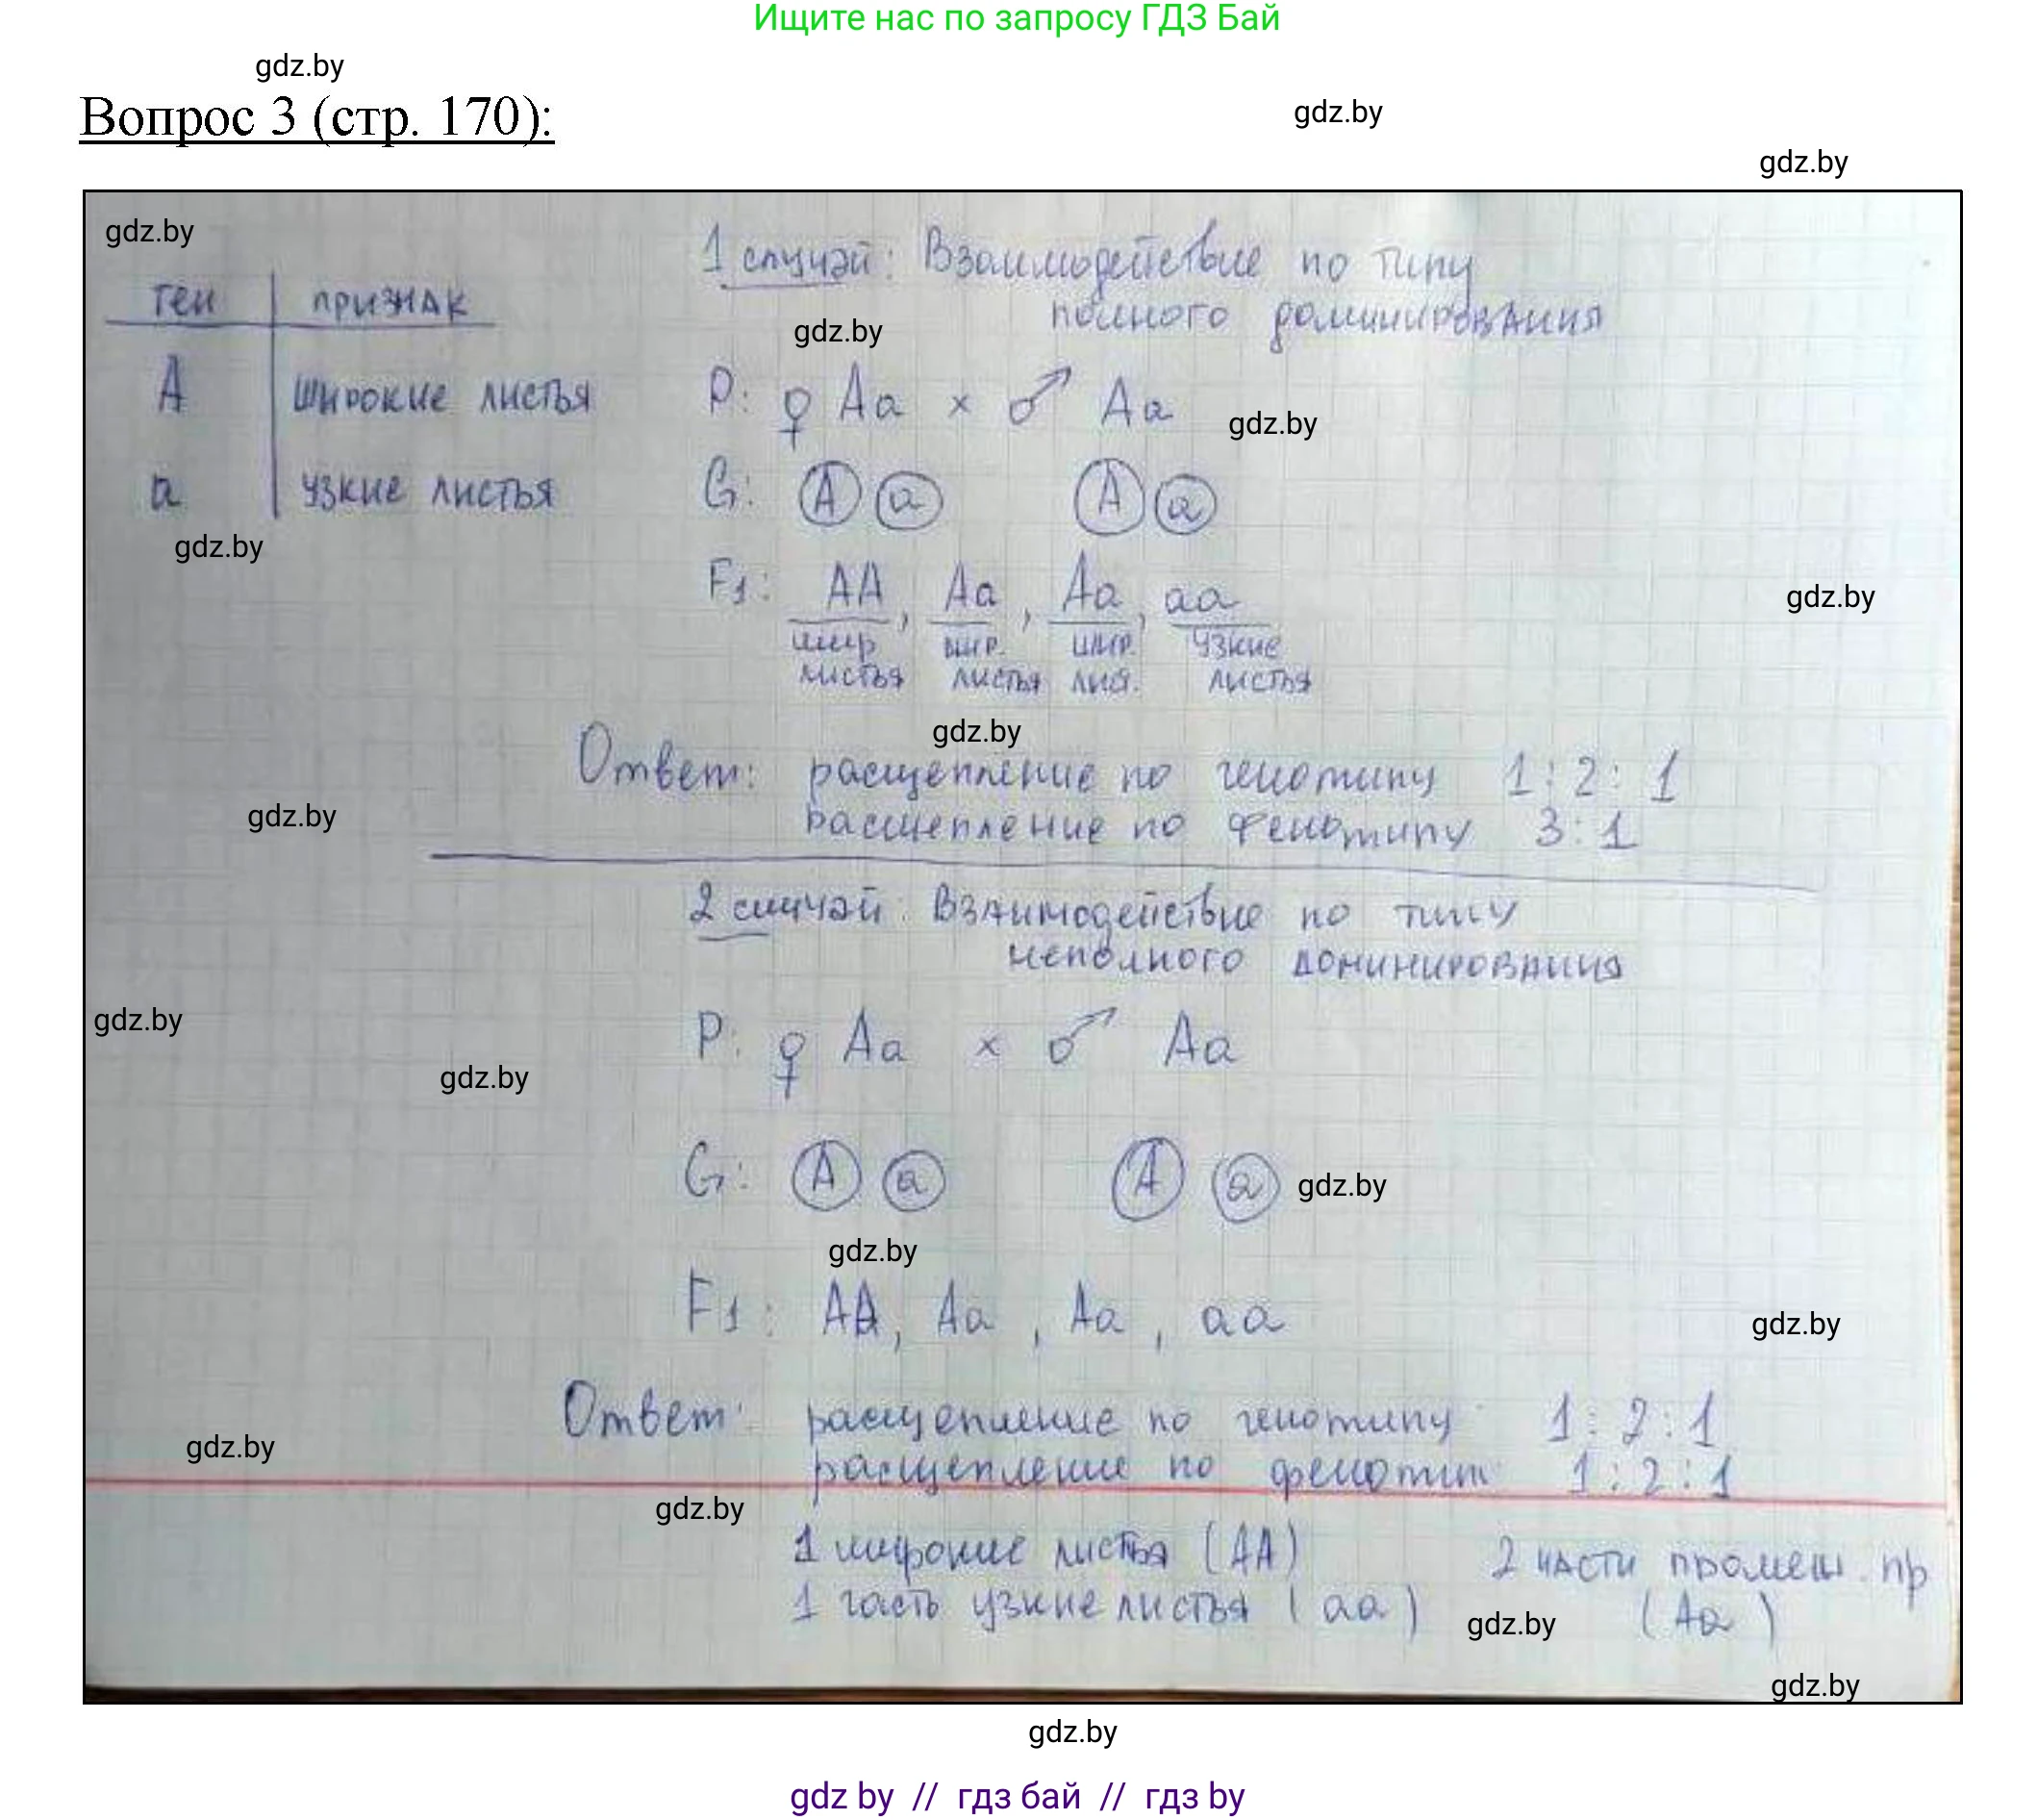 Ищите нас по запросу ГДЗ Бай
gdz.by
Вопрос 3 (стр. 170):
gdz.by
gdz.by
gdz.by
1 случай: Взаимодействие по типу
полного доминирования
ген | признак
gdz.by
A | широкие листья
a | узкие листья
P: ♀ Aa × ♂ Aa
gdz.by
G: A a A a
gdz.by
F1: AA, Aa, Aa, aa
gdz.by
шир шир. шир. узкие
листья листья лис. листья
gdz.by
Ответ: расщепление по генотипу 1:2:1
gdz.by
расщепление по фенотипу 3:1
2 случай: Взаимодействие по типу
неполного доминирования
gdz.by
P: ♀ Aa × ♂ Aa
gdz.by
G: A a A a
gdz.by
gdz.by
F1: AA, Aa, Aa, aa
gdz.by
Ответ: расщепление по генотипу 1:2:1
gdz.by
расщепление по фенотип 1:2:1
gdz.by
1 широкие листья (AA) 2 части промеж. пр
1 часть узкие листья (aa) (Aa)
gdz.by
gdz.by
gdz.by
gdz by // гдз бай // гдз by